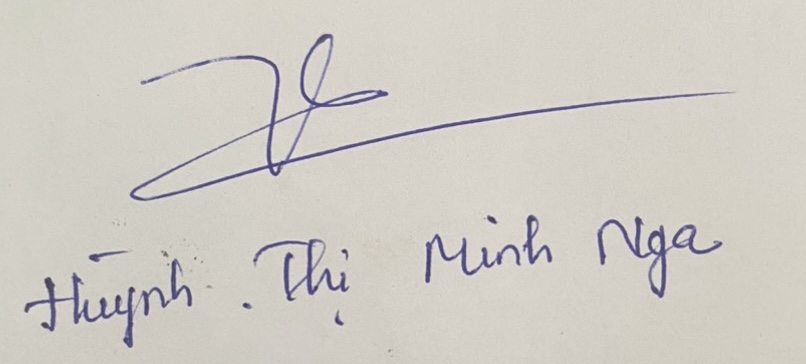 Huỳnh Thị Minh Nga